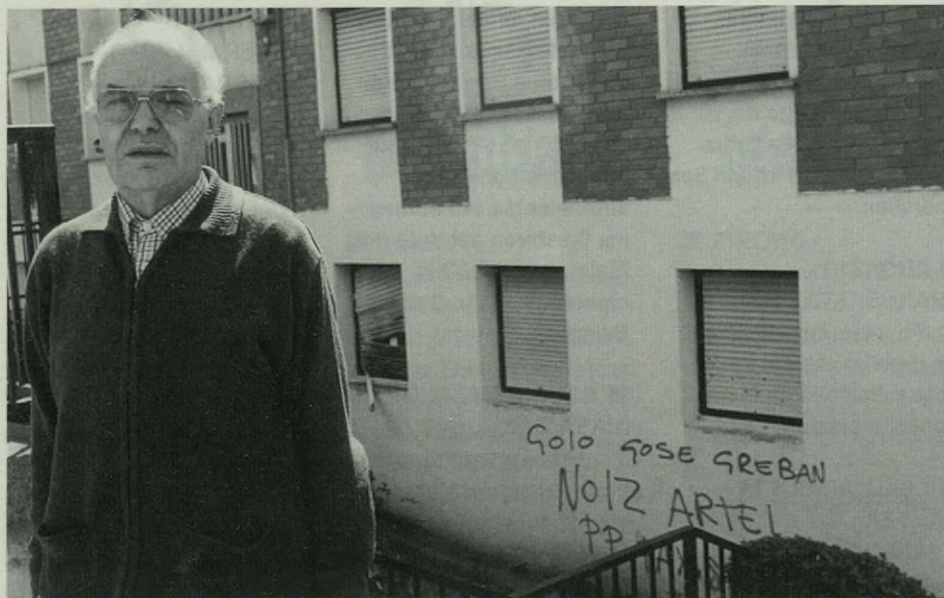 GOIO GOSE GREBAN
NOIZ ARTE!
PP